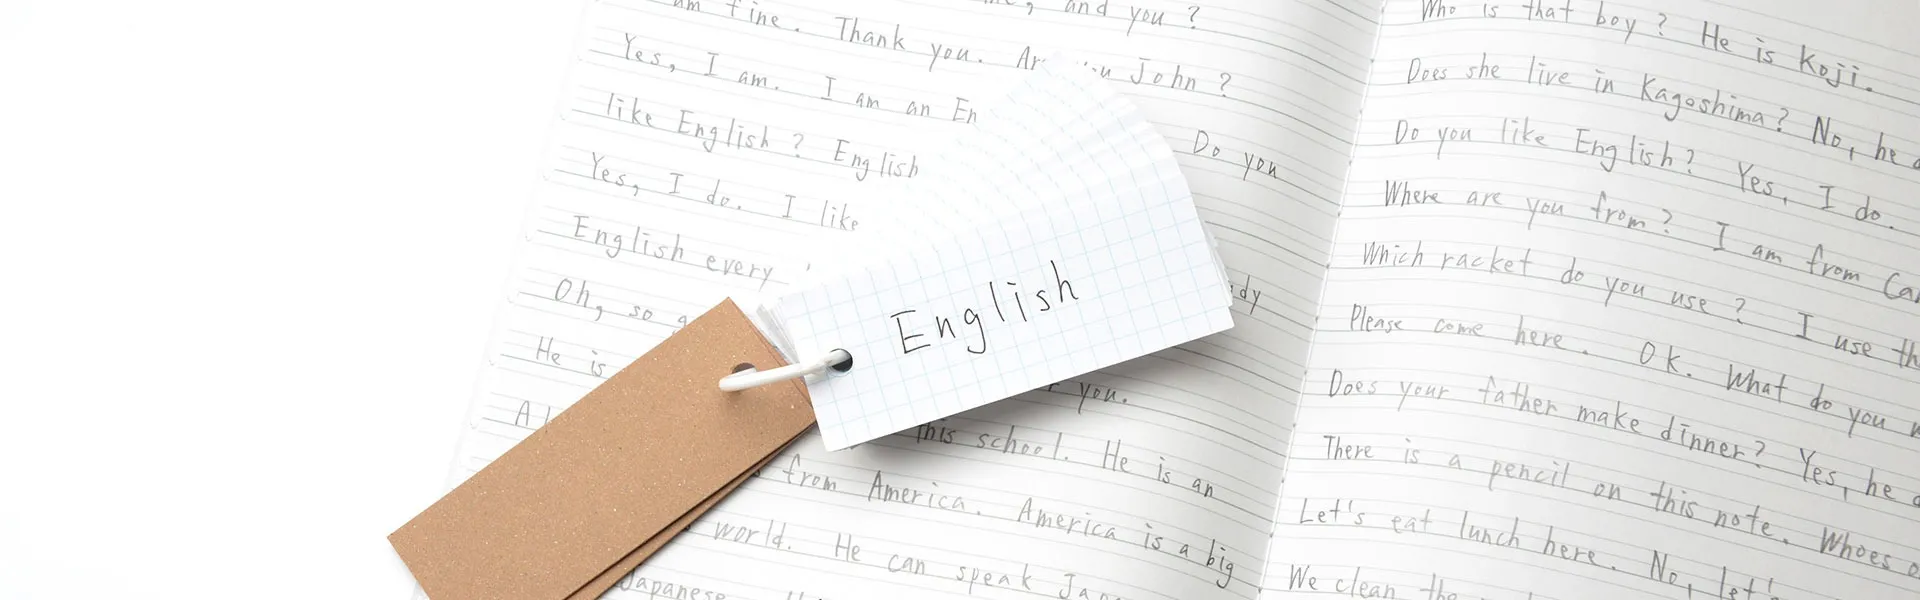 am fine. Thank you. Are you John ?
and you ?
Yes, I am. I am an En
like English ? English
Do you
Yes, I do. I like
English every
Oh, so
dy
He is
you.
this school. He is an
from America. America is a big
world. He can speak Jap
Japanese
English
Who is that boy ? He is Koji.
Does she live in Kagoshima? No, he
Do you like English? Yes, I do.
Where are you from? I am from Can
Which racket do you use ? I use th
Please come here. OK. What do you
Does your father make dinner? Yes, he
There is a pencil on this note. Whoes
Let's eat lunch here. No, let's
We clean the